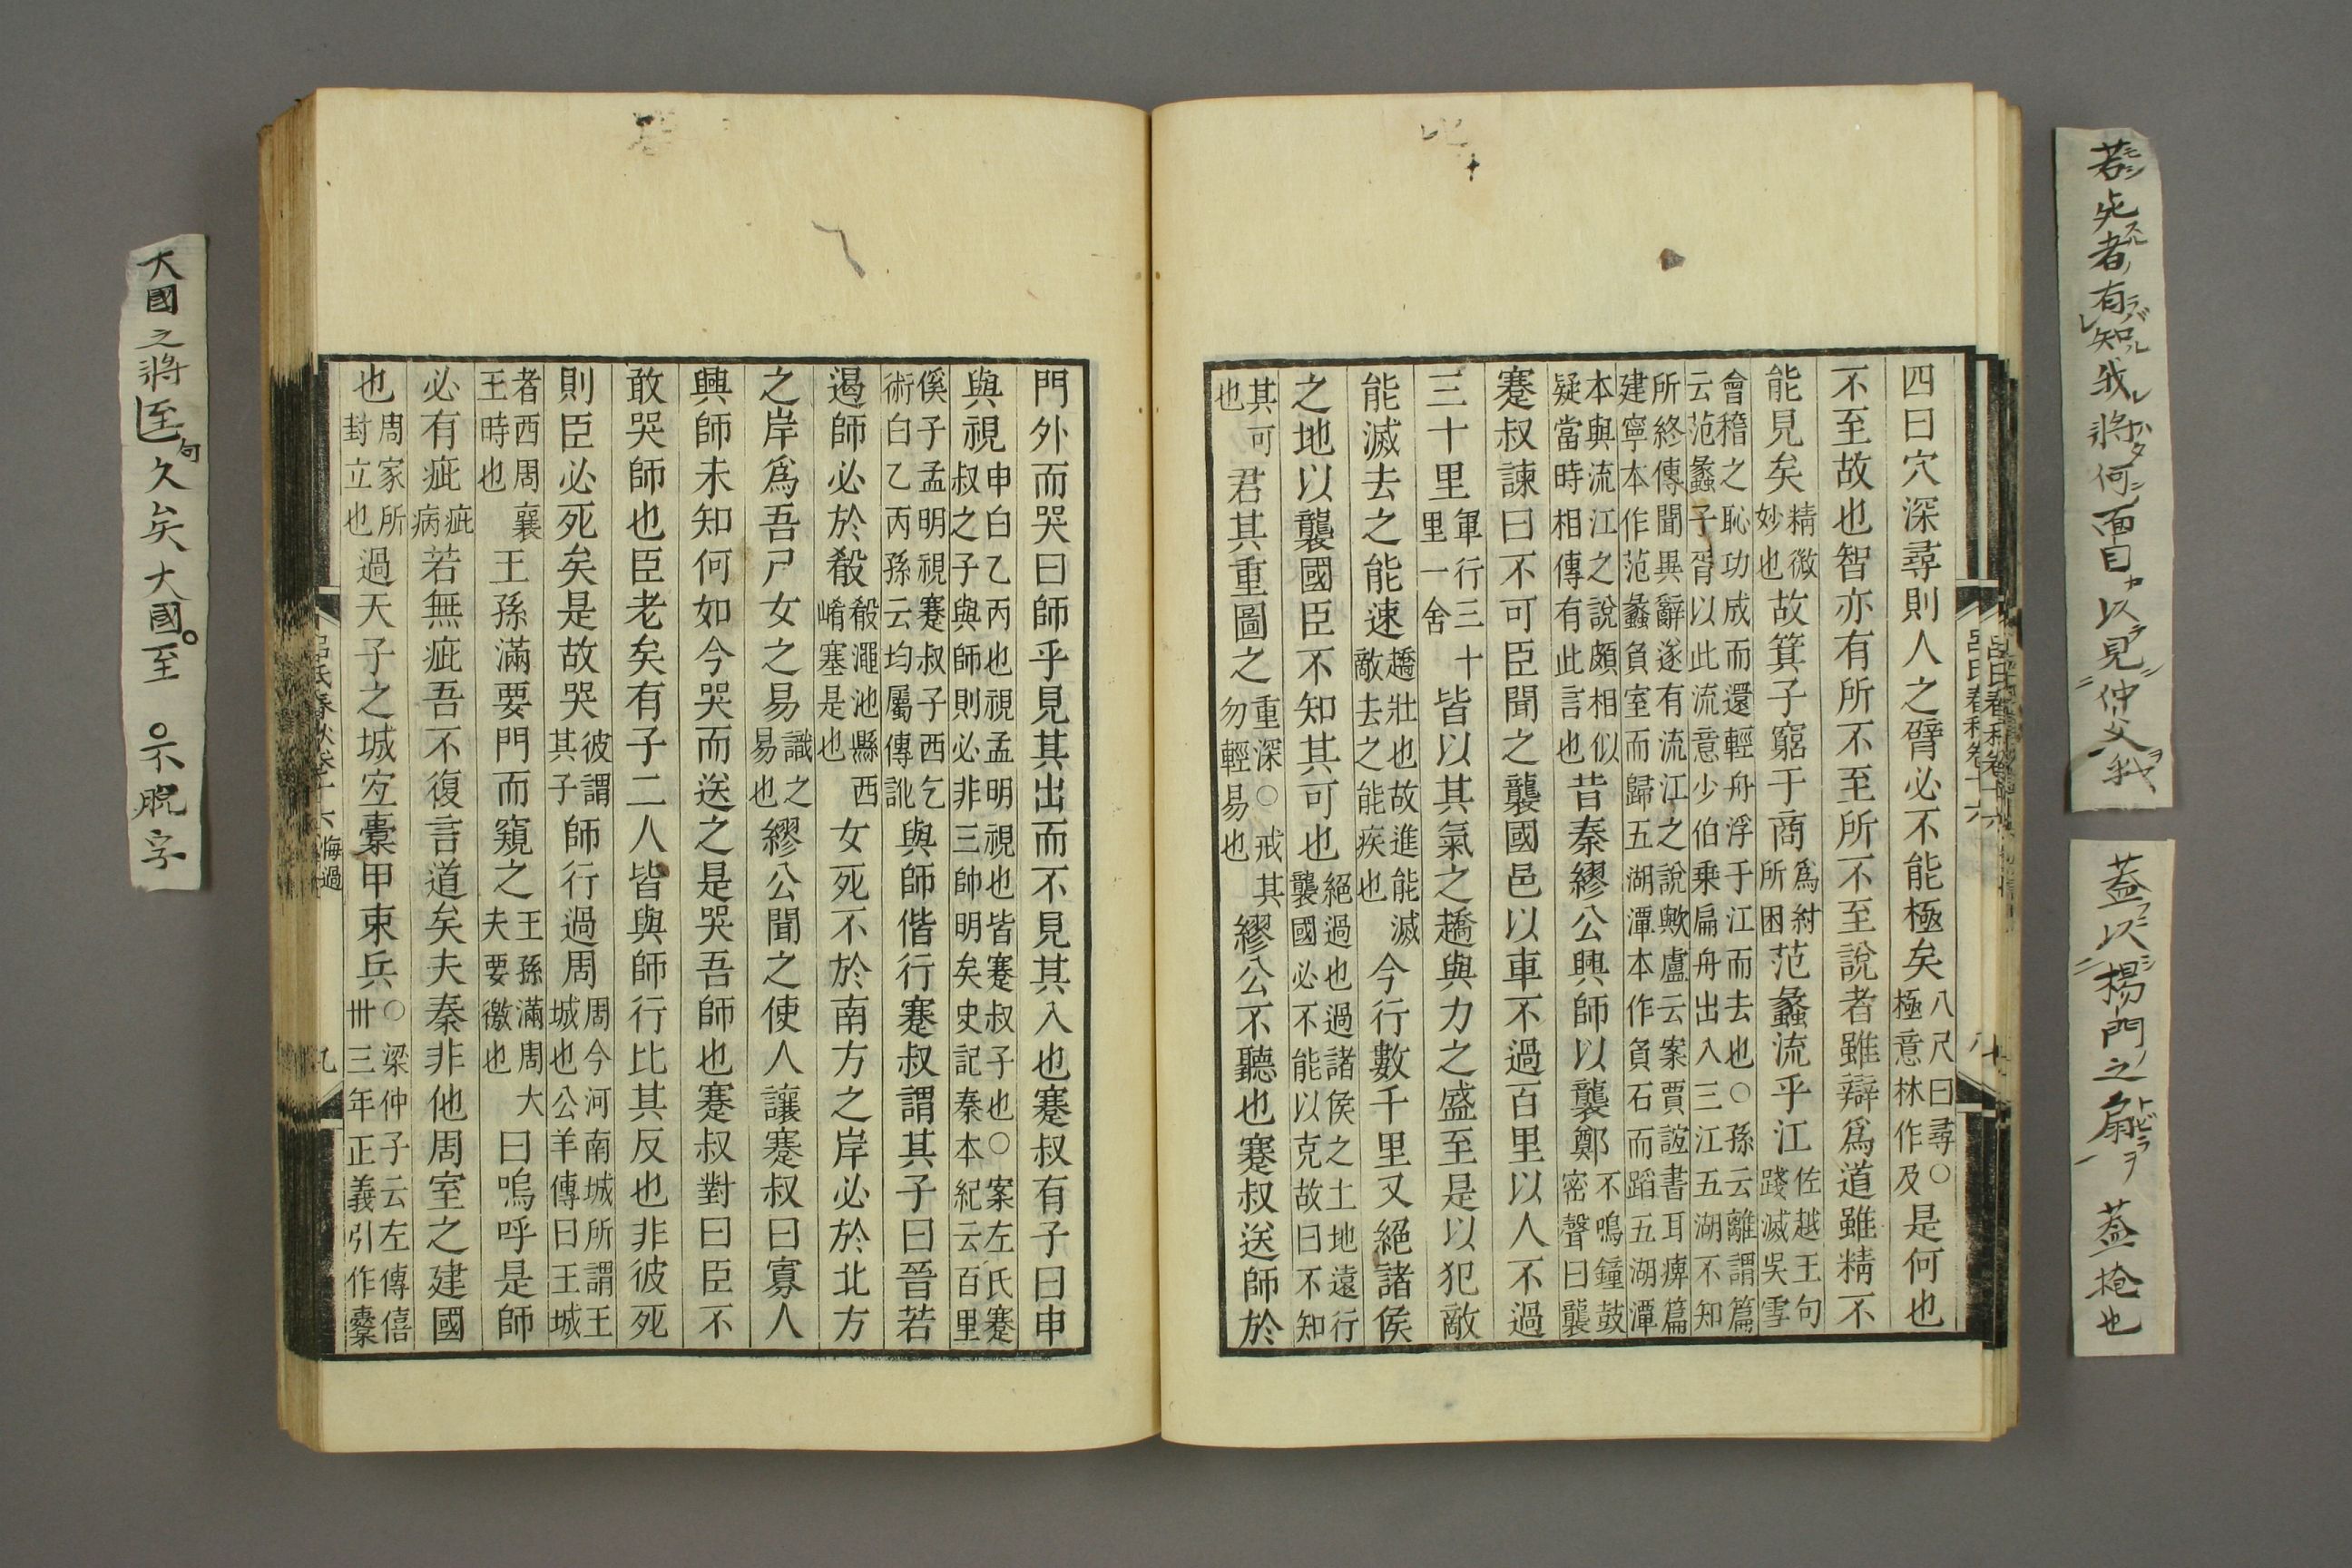 若死者有知我將何面目以見仲父我
モシスルノラバレルレハタニカラニヲヤ
蓋以楊門之扇 蓋掩也
フニシニノトビラヲ一
呂氏春秋卷十六
四曰穴深尋則人之臂必不能極矣八尺曰尋○極意林作及是何也
不至故也智亦有所不至所不至說者雖辯爲道雖精不
能見矣精微妙也故箕子窮于商爲紂所困范蠡流乎江佐越王句踐滅吳雪
會稽之恥功成而還輕舟浮于江而去也○孫云離謂篇云范蠡子胥以此流意少伯乗扁舟出入三江五湖不知
所終傳聞異辭遂有流江之說歟盧云案賈誼書耳痺篇建寧本作范蠡負室而歸五湖潭本作負石而蹈五湖潭
本與流江之說頗相似疑當時相傳有此言也昔秦繆公興師以襲鄭不鳴鐘鼓密聲曰襲
蹇叔諫曰不可臣聞之襲國邑以車不過百里以人不過
三十里軍行三十里一舍皆以其氣之趫與力之盛至是以犯敵
能滅去之能速趫壯也故進能滅敵去之能疾也今行數千里又絕諸侯
之地以襲國臣不知其可也絕過也過諸侯之土地遠行襲國必不能以克故曰不知
其可也君其重圖之重深○戒其勿輕易也繆公不聽也蹇叔送師於
門外而哭曰師乎見其出而不見其入也蹇叔有子曰申
與視申白乙丙也視孟明視也皆蹇叔子也○案左氏蹇叔之子與師則必非三帥明矣史記秦本紀云百里
傒子孟明視蹇叔子西乞術白乙丙孫云均屬傳訛與師偕行蹇叔謂其子曰晉若
遏師必於殽殽澠池縣西崤塞是也女死不於南方之岸必於北方
之岸爲吾尸女之易識之易也繆公聞之使人讓蹇叔曰寡人
興師未知何如今哭而送之是哭吾師也蹇叔對曰臣不
敢哭師也臣老矣有子二人皆與師行比其反也非彼死
則臣必死矣是故哭彼謂其子師行過周周今河南城所謂王城也公羊傳曰王城
者西周襄王時也王孫滿要門而窺之王孫滿周大夫要徼也曰嗚呼是師
必有疵疵病若無疵吾不復言道矣夫秦非他周室之建國
也周家所封立也過天子之城宜櫜甲束兵○梁仲子云左傳僖卅三年正義引作櫜
呂氏春秋卷十六 悔過 九
大國之將至句久矣大國。至 ○示脫字